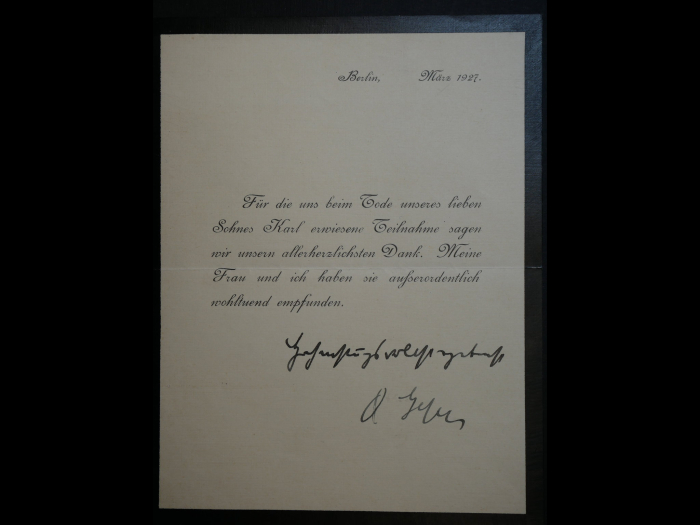 Berlin, März 1927.
Für die uns beim Tode unseres lieben
Sohnes Karl erwiesene Teilnahme sagen
wir unsern allerherzlichsten Dank. Meine
Frau und ich haben sie außerordentlich
wohltuend empfunden.
Hochachtungsvollst ergebenst